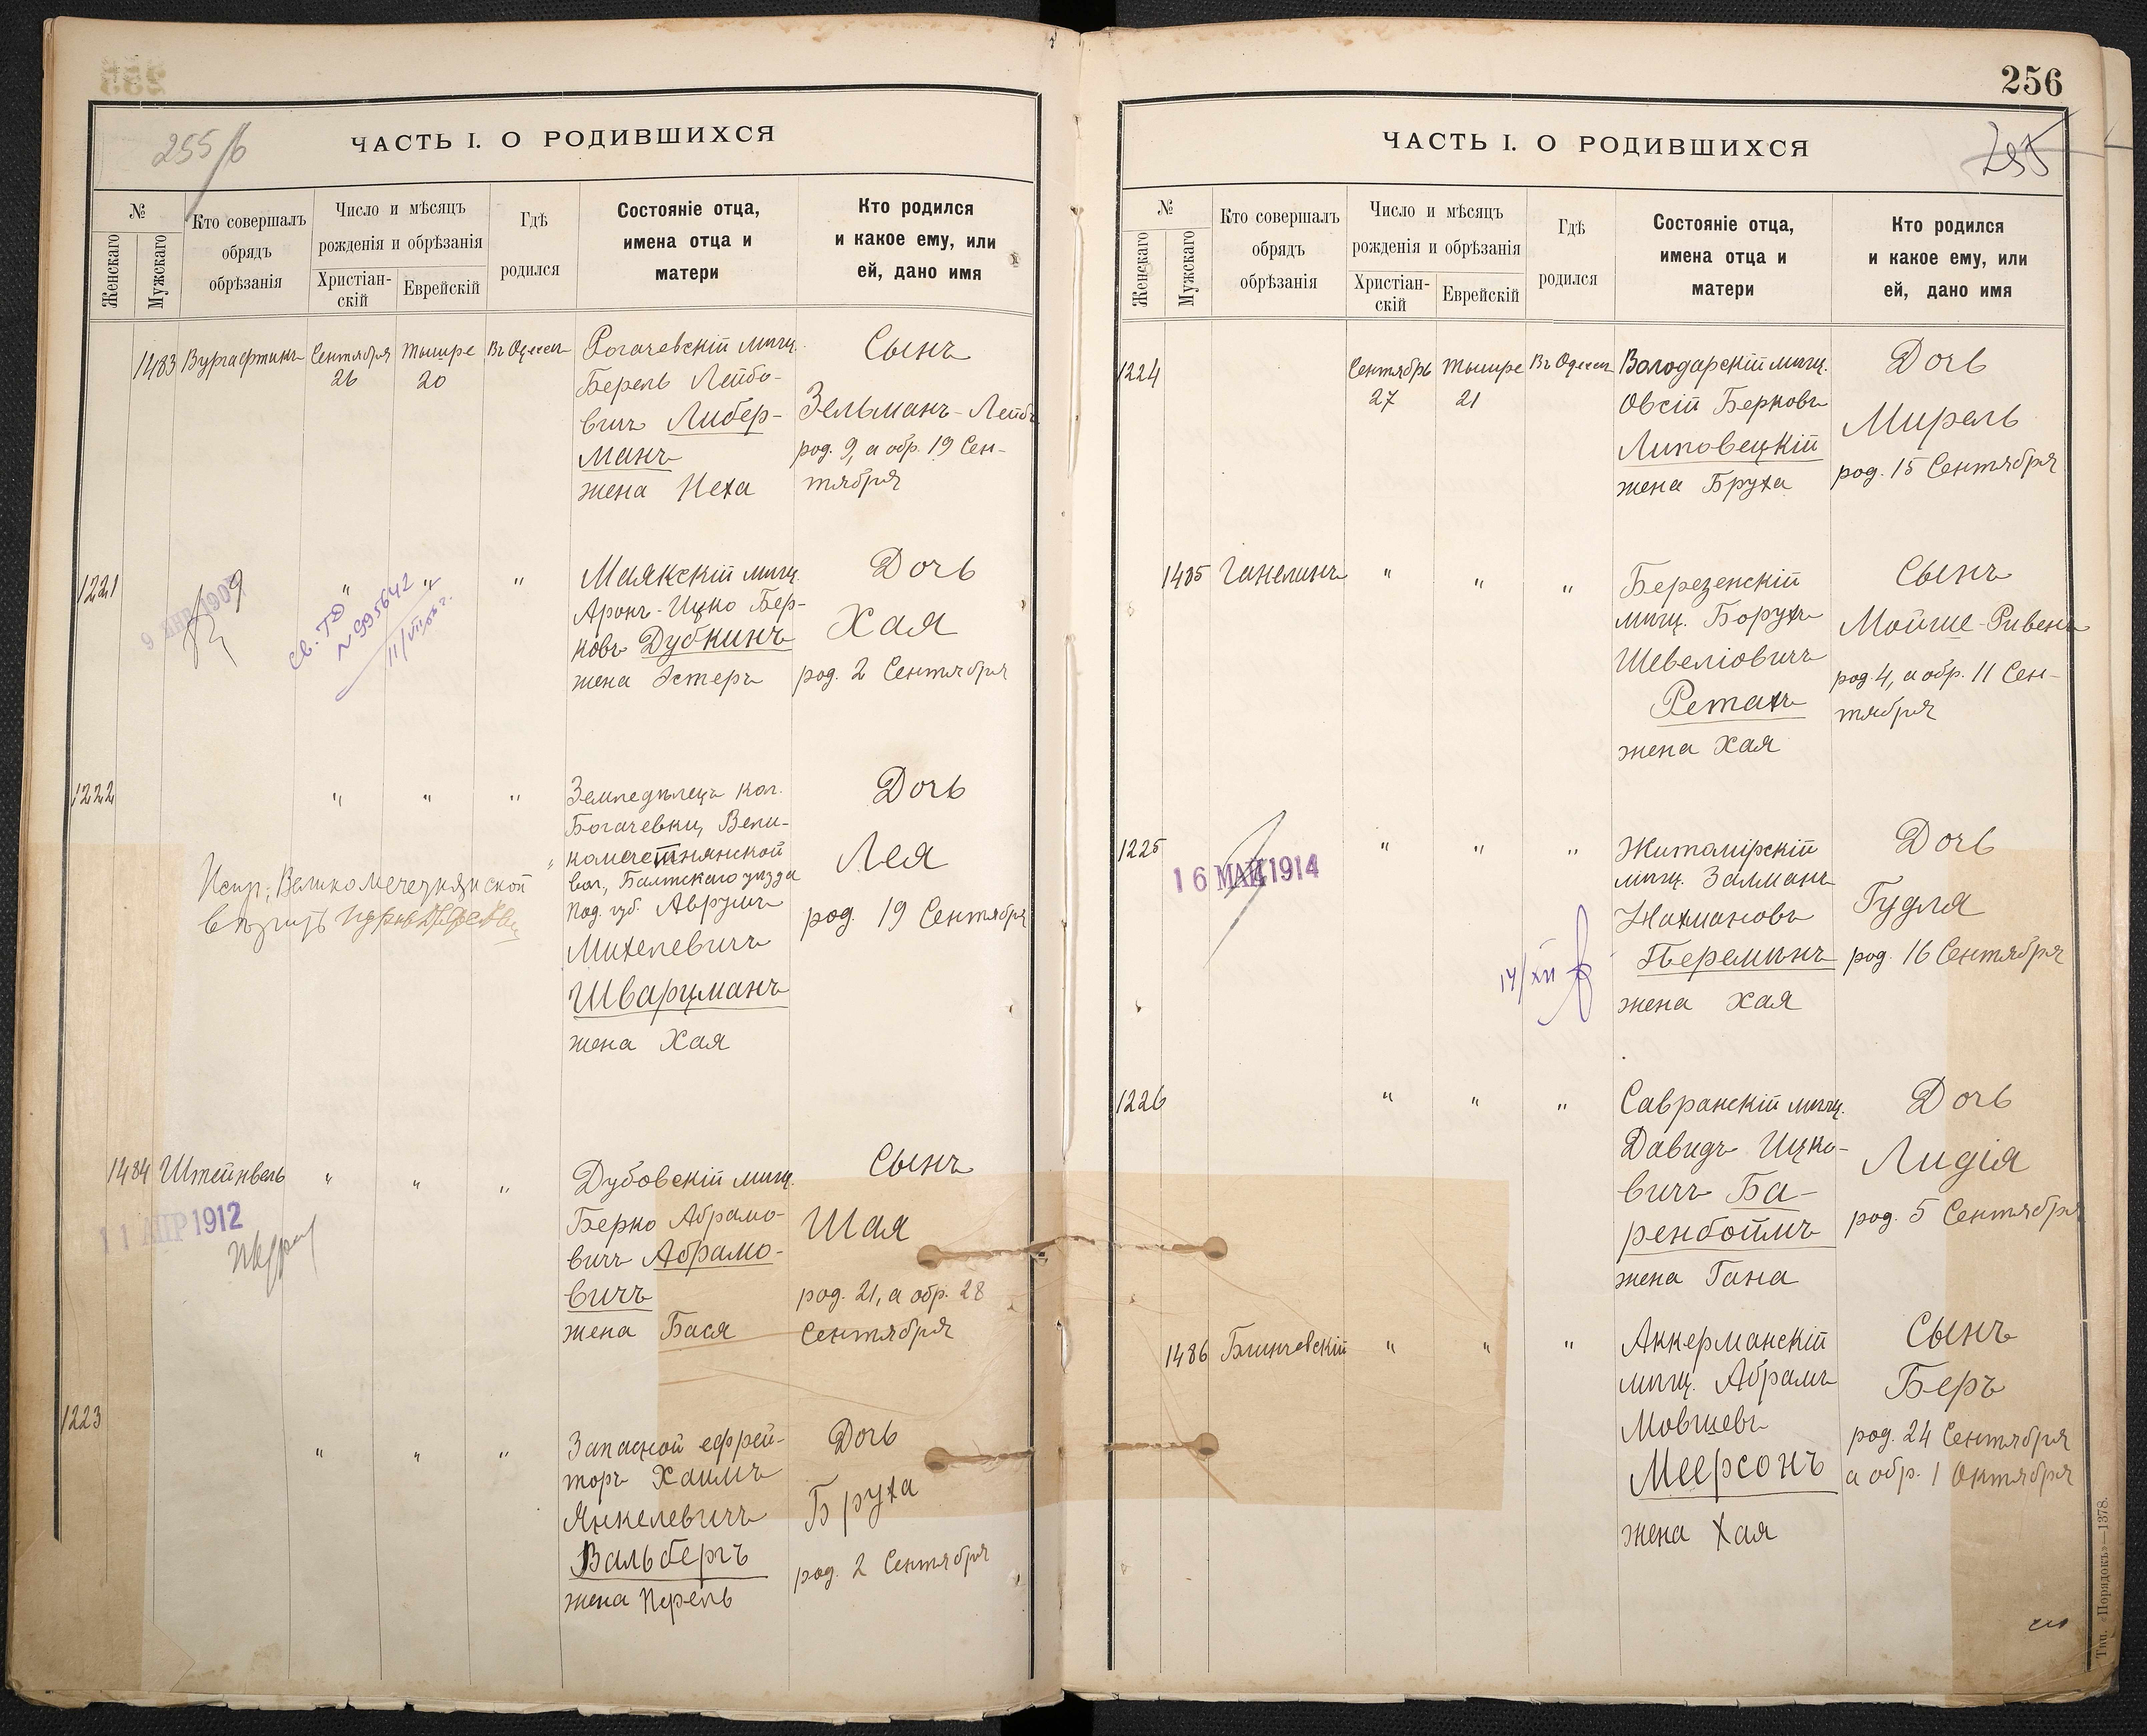 255/б
ЧАСТЬ I. О РОДИВШИХСЯ
№
Женскаго
Мужскаго
Кто совершалъ
обрядъ
обрѣзанія
Число и мѣсяцъ
рожденія и обрѣзанія
Христіан-
скій
Еврейскій
Гдѣ
родился
Состояніе отца,
имена отца и
матери
Кто родился
и какое ему, или
ей, дано имя
1483
Вургафтикъ
Сентября
26
Тышре
20
Въ Одессѣ
Рогачевскій мѣщ.
Берель Лейбо-
вичъ Либер-
манъ
жена Неха
Сынъ
Зельманъ-Лейбъ
род. 9, а обр. 19 Сен-
тября
1221
9 ЯНВ 1909
св. ТФ
№ 995642
"
"
"
Маякскій мѣщ.
Аронъ-Ицко Бер-
ковъ Дубкинъ
жена Эстеръ
Дочь
Хая
род. 2 Сентября
1222
"
"
"
Земледѣлецъ кол.
Богачевки, Вели-
комечетнянской
вол., Балтскаго уѣзда
Под. губ. Аврумъ
Михелевичъ
Шварцманъ
жена Хая
Дочь
Лея
род. 19 Сентября
1484
Штейнвель
11 АПР 1912
"
"
"
Дубовскій мѣщ.
Берко Абрамо-
вичъ Абрамо-
вичъ
жена Бася
Сынъ
Шая
род. 21, а обр. 28
Сентября
1223
"
"
"
Запасной ефрей-
торъ Хаимъ
Янкелевичъ
Вальбергъ
жена Перель
Дочь
Бруха
род. 2 Сентября
256
255
ЧАСТЬ I. О РОДИВШИХСЯ
№
Женскаго
Мужскаго
Кто совершалъ
обрядъ
обрѣзанія
Число и мѣсяцъ
рожденія и обрѣзанія
Христіан-
скій
Еврейскій
Гдѣ
родился
Состояніе отца,
имена отца и
матери
Кто родился
и какое ему, или
ей, дано имя
1224
Сентябрь
27
Тышре
21
Въ Одессѣ
Володарскій мѣщ.
Овсій Берковъ
Липовецкій
жена Бруха
Дочь
Мирель
род. 15 Сентября
1485
Ганелинъ
"
"
"
Березенскій
мѣщ. Борухъ
Шевеліовичъ
Ретахъ
жена Хая
Сынъ
Мойше-Ривенъ
род. 4, а обр. 11 Сен-
тября
1225
16 МАЙ 1914
14/XII
"
"
"
Житомірскій
мѣщ. Залманъ
Нахмановъ
Перемынъ
жена Хая
Дочь
Гудля
род. 16 Сентября
1226
"
"
"
Савранскій мѣщ.
Давидъ Ицко-
вичъ Ба-
ренбоймъ
жена Гана
Дочь
Лидія
род. 5 Сентября
1486
Блинчевскій
"
"
"
Аккерманскій
мѣщ. Абрамъ
Мовшевъ
Меерсонъ
жена Хая
Сынъ
Беръ
род. 24 Сентября
а обр. 1 Октября
Тип. «Порядокъ»—1378.